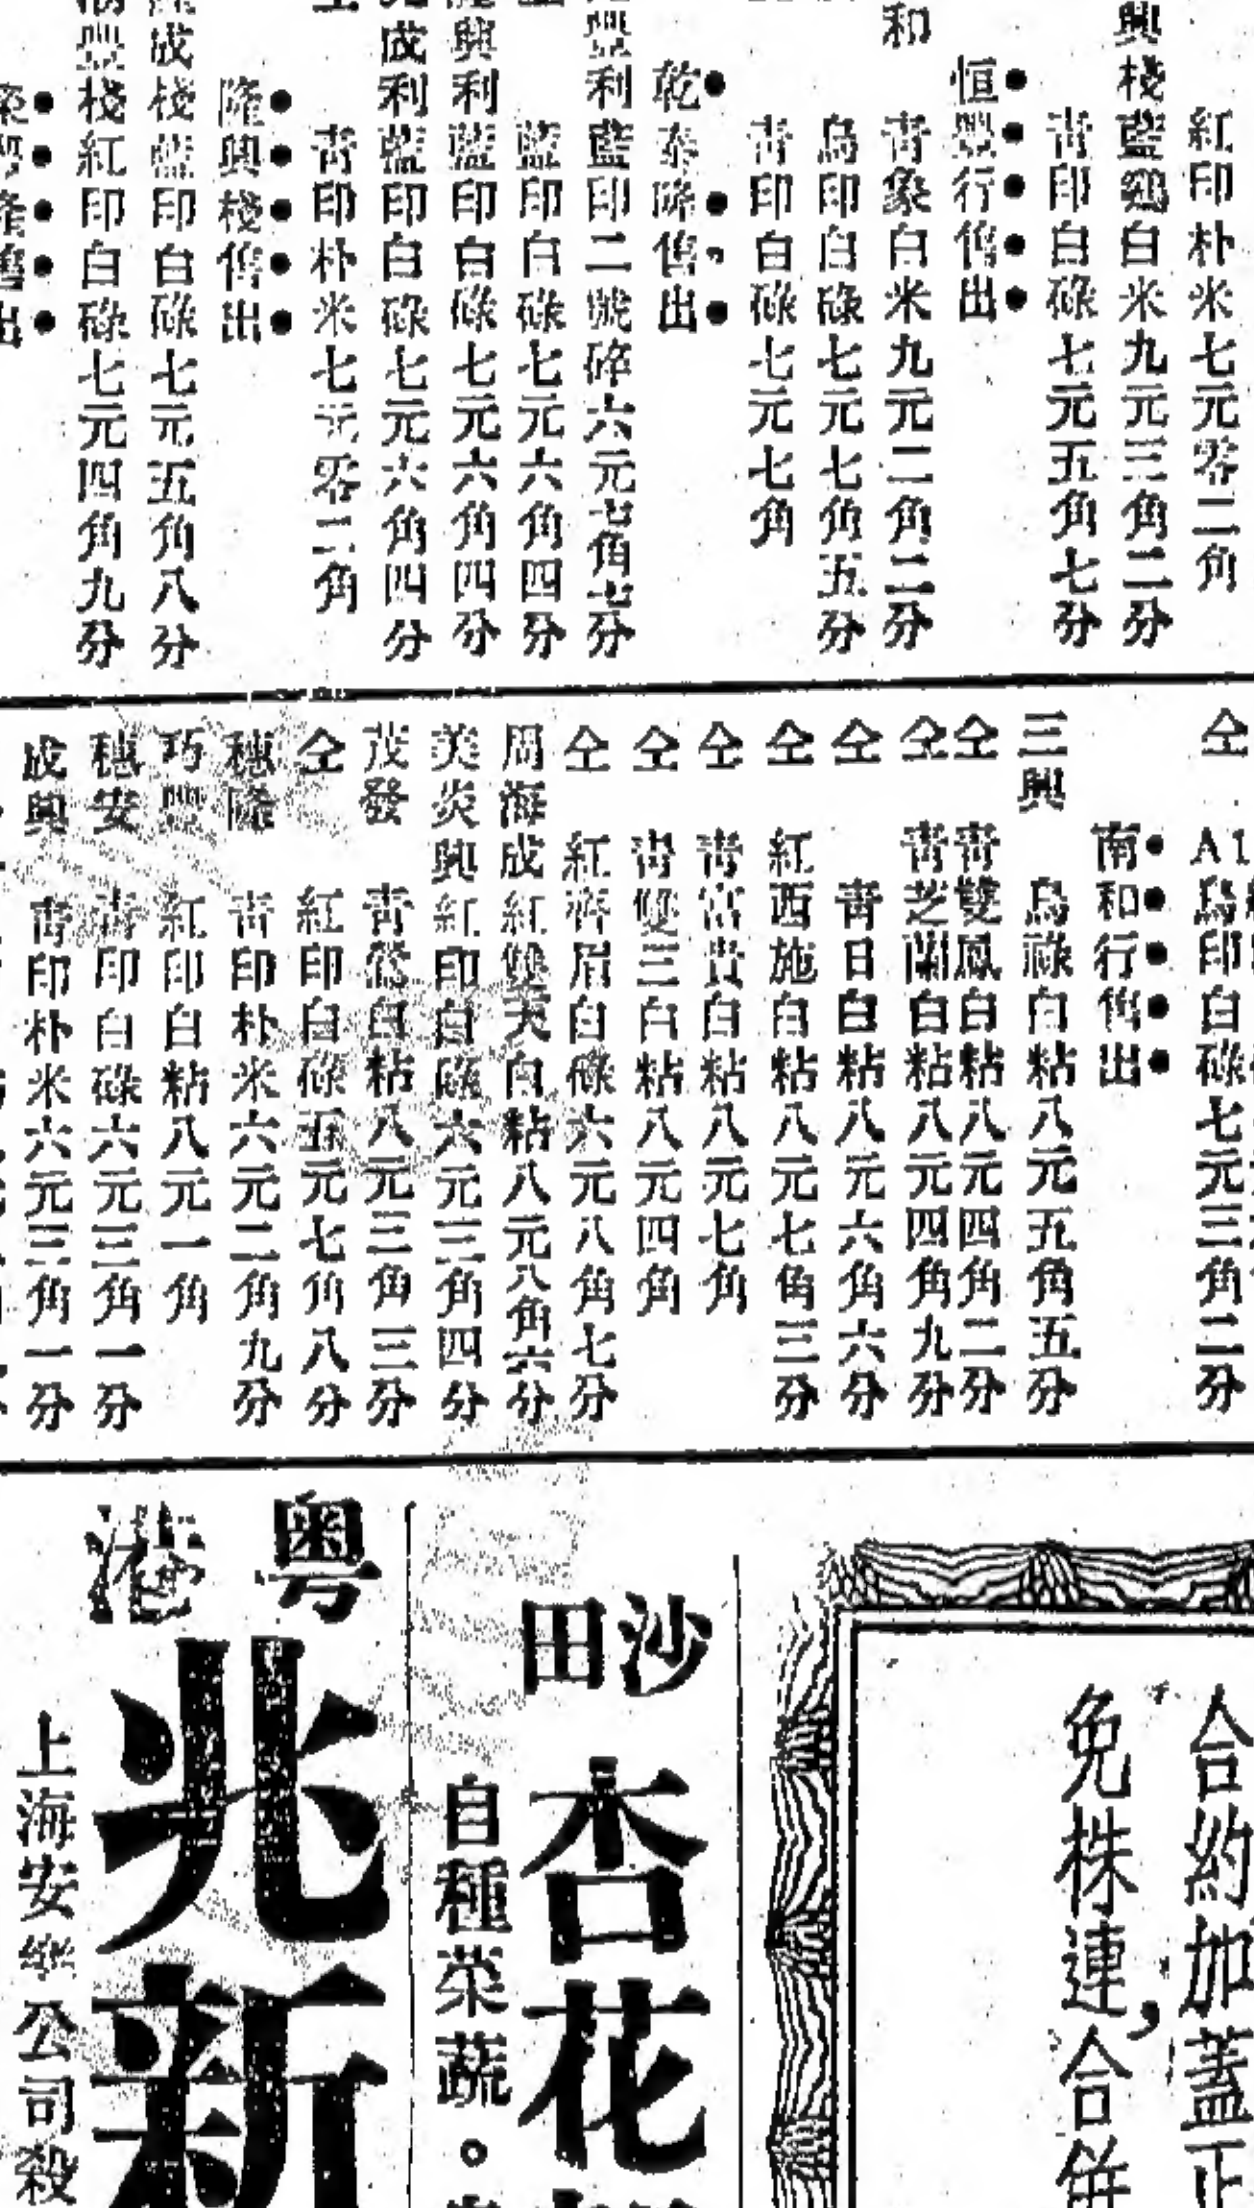 紅印朴米七元零二角
興棧藍鷄白米九元三角二分
青印白碌七元五角七分
恒豐行售出
和 青象白米九元二角二分
烏印白碌七元七角五分
青印白碌七元七角
乾泰隆售出
豐利藍印二號碎六元七角七分
藍印白碌七元六角四分
興利藍印白碌七元六角四分
成利藍印白碌七元六角四分
青印朴米七元零二角
隆興棧售出
成棧藍印白碌七元五角八分
豐棧紅印白碌七元四角九分
隆售出
仝 A1烏印白碌七元三角二分
南和行售出
三興 烏祿白粘八元五角五分
仝 青雙鳳白粘八元四角二分
仝 青芝蘭白粘八元四角九分
仝 青日白粘八元六角六分
仝 紅西施白粘八元七角三分
仝 青富貴白粘八元七角
仝 青雙三白粘八元四角
仝 紅齊眉白碌六元八角七分
周海成紅雙美白粘八元八角六分
美炎興紅印白碌六元三角四分
茂發 青鶯白粘八元三角三分
仝 紅印白碌五元七角八分
穗隆 青印朴米六元二角九分
巧豐 紅印白粘八元一角
穗安 青印白碌六元三角一分
成興 青印朴米六元三角一分
合約加蓋正
免株連，合併
沙田
杏花
自種菜蔬。
粤港
兆新
上海安樂公司殺